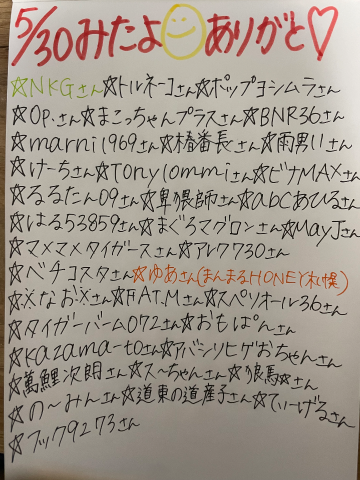 5/30みたよ ありがと♡
☆NKGさん☆トルネーコさん☆ポップヨシムラさん
☆Op.さん☆まこっちゃんプラスさん☆BNR36さん
☆marni1969さん☆椿番長さん☆雨男いさん
☆けーちさん☆Tonylommiさん☆ビナMAXさん
☆るるたん09さん☆卑猥師さん☆abcあひるさん
☆はる53859さん☆まぐろマグロンさん☆MayJさん
☆マメマメタイガースさん☆アレク730さん
☆ペチコスタさん☆ゆあさん(まんまるHONEY札幌)
☆☓なお☓さん☆FAT.Mさん☆スペリオール36さん
☆タイガーバーム072さん☆おもぱんさん
☆kazama-toさん☆アバシリヒゲおちゃんさん
☆萬鯉次朗さん☆ス〜ちゃんさん☆狼馬★さん
☆の〜みんさん☆道東の道産子さん☆てぃーげるさん
☆フック9273さん